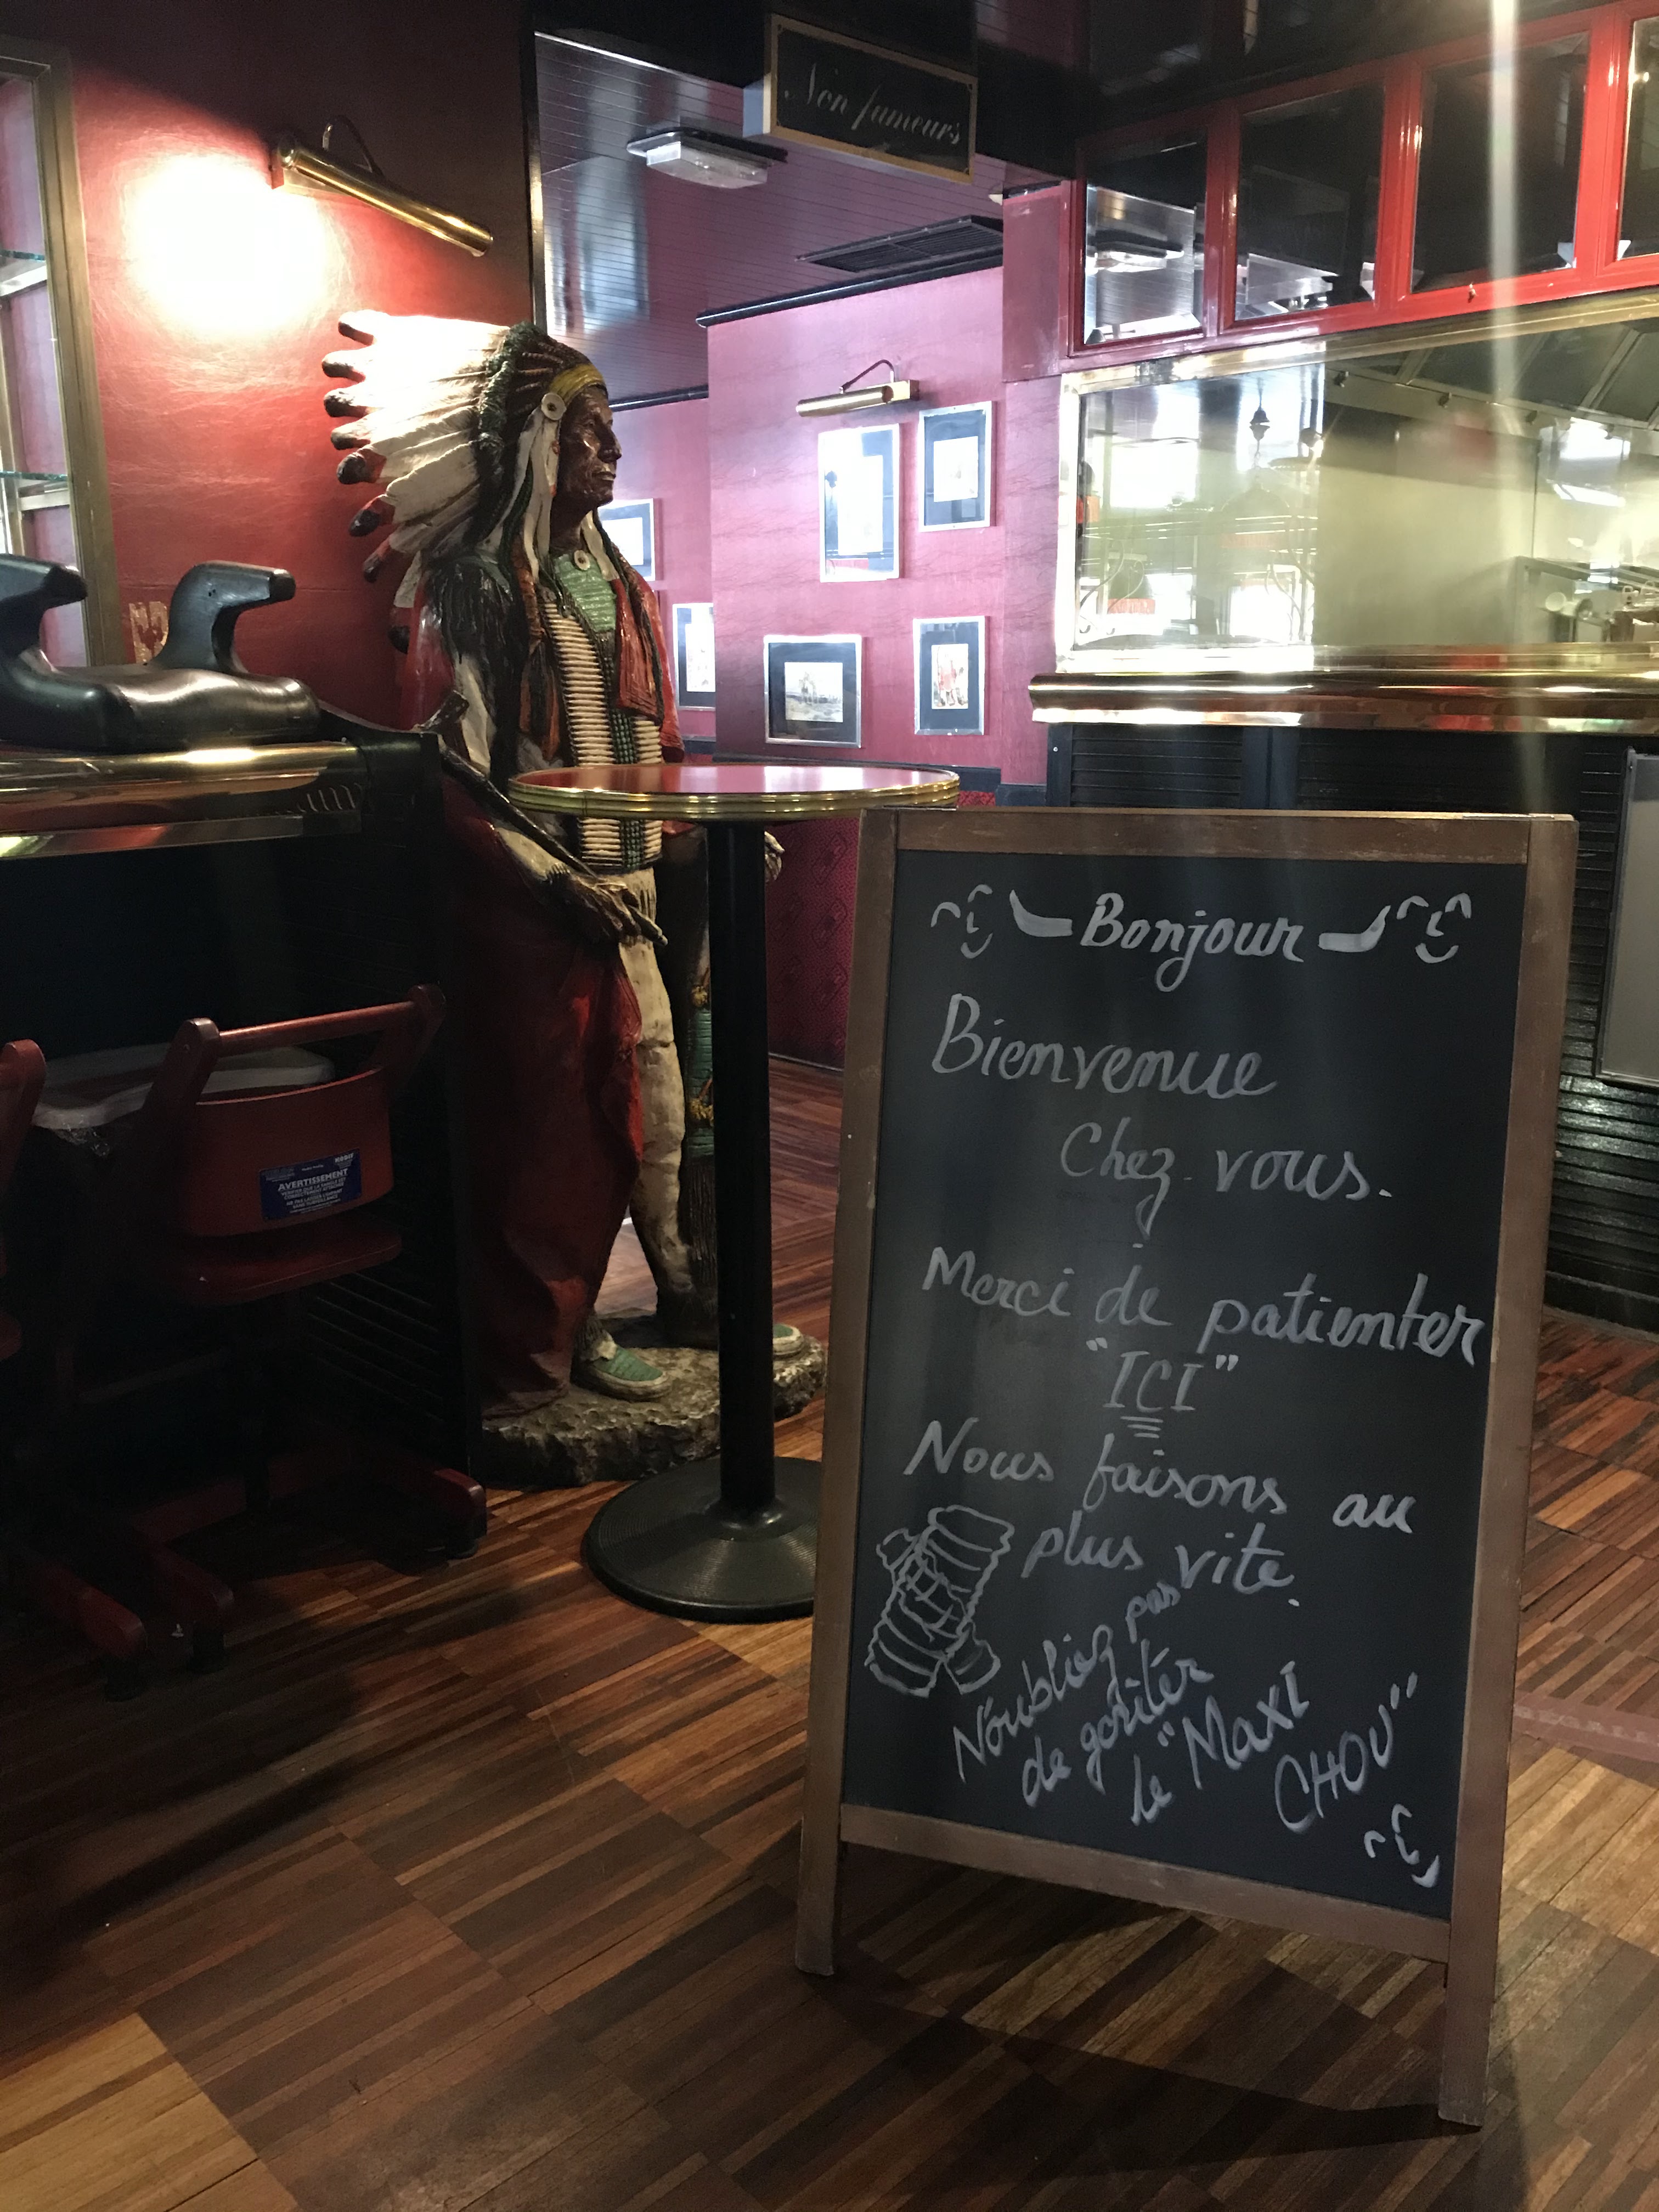 Non fumeurs
AVERTISSEMENT
Bonjour
Bienvenue
Chez vous.
Merci de patienter
"ICI"
Nous faisons au
plus vite.
N'oubliez pas
de goûter
le "MAXI
CHOU"